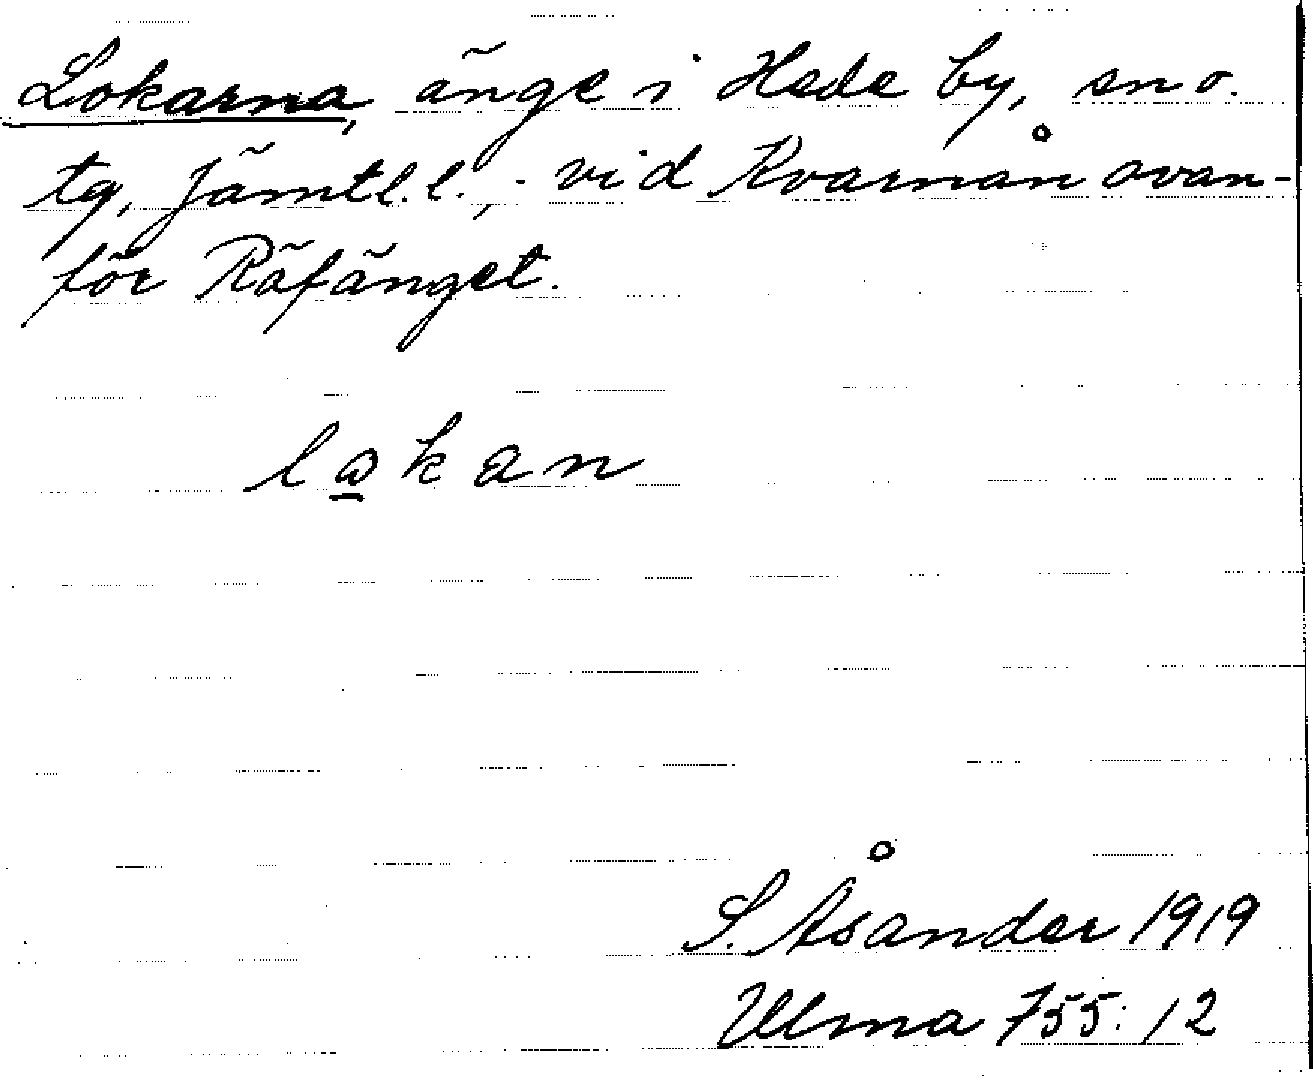 Lokarna, änge i Hede by, sn o.
tg, Jämtl. l.; vid Kvarnån ovan-
för Räfänget.
lo̲kan
S. Åsander 1919
Ulma 755:12